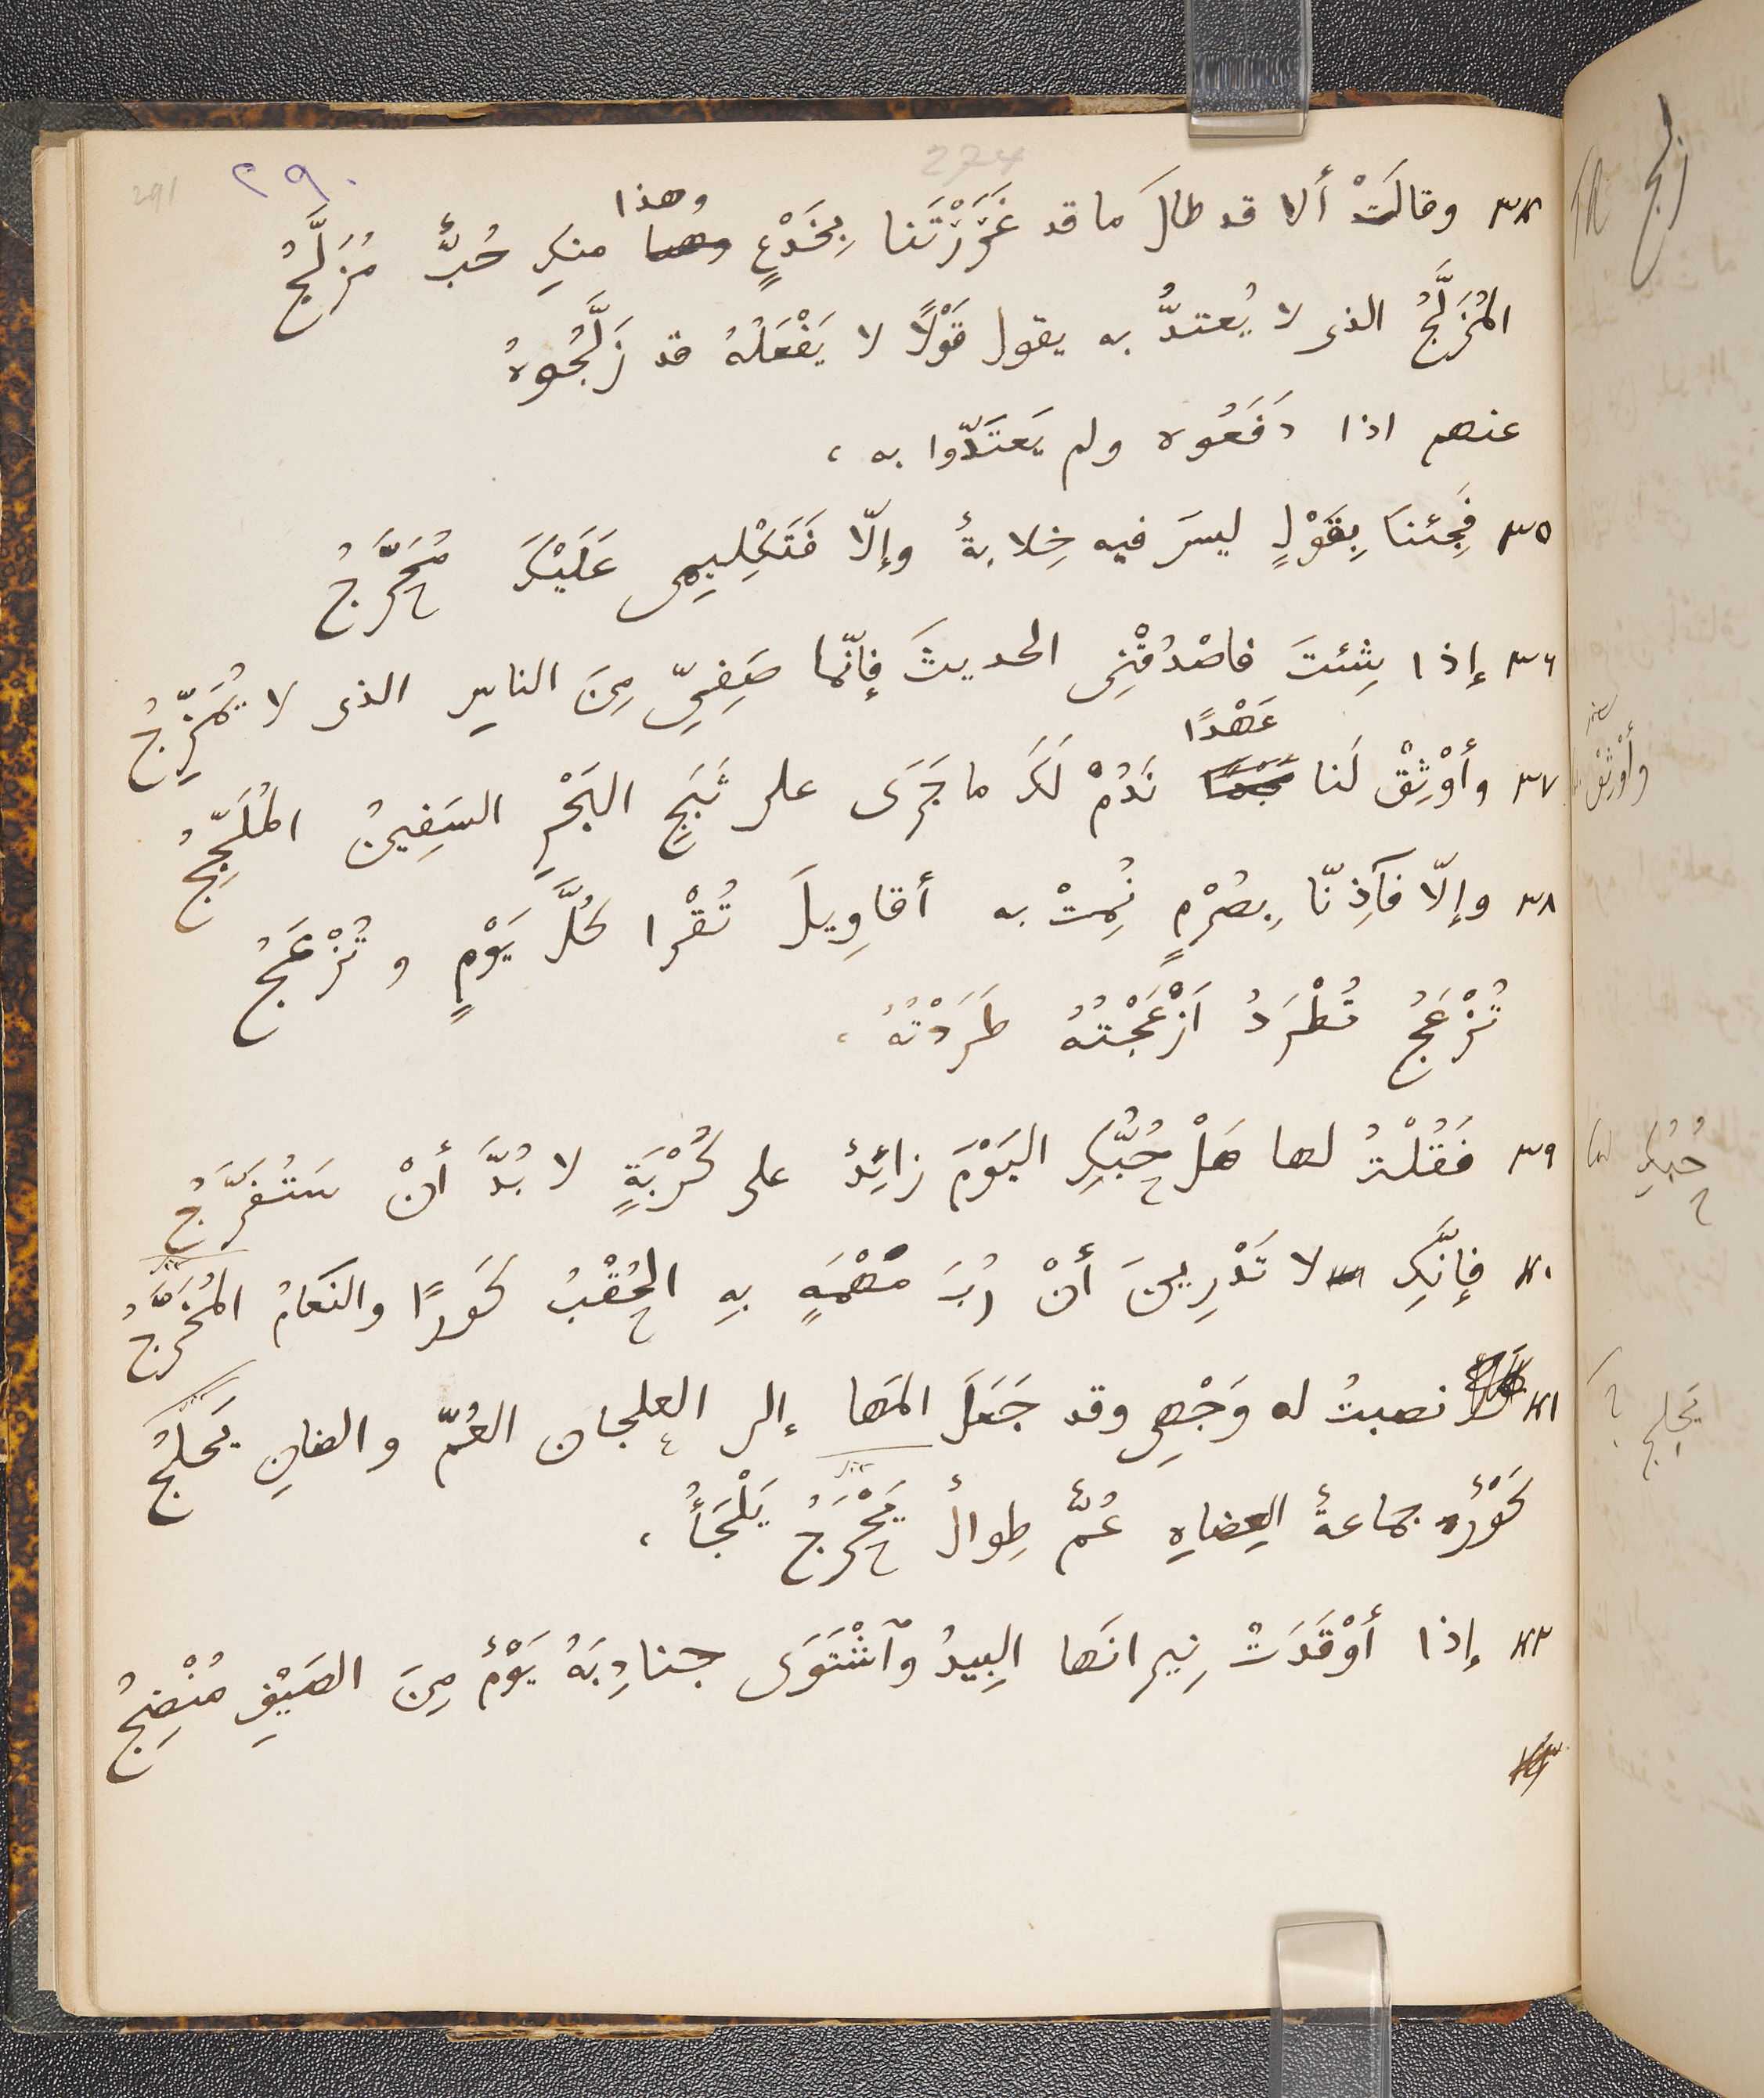 ٢٩٠
291
274
وهذا
٣٤ وقالَتْ ألا قد طالَ ما قد غَرَرْتَنا بِخَدْعٍ وهذا منكِ حُبٌّ مُزَلَّجُ
المُزَلَّجُ الذى لا يُعتدُّ به يقول قَوْلًا لا يَفْعَلُهُ قد زَلَّجُوهُ
عنهم اذا دَفَعُوه ولم يَعتَدّوا به ،
٣٥ فَجِئنَا بِقَوْلٍ ليسَ فيه خِلابةٌ وإلّا فَتَكْلِيمِى عَلَيْكَ مُحَرَّجُ
٣٦ إذا شِئتَ فاصْدُقْنِى الحديثَ فإنّما صَفِىّ مِنَ الناسِ الذى لا يُمَزِّجُ
عَهْدًا
٣٧ وأوْثِقْ لَنا نَدُمْ لَكَ ما جَرَى على ثَبَجِ البَحْرِ السَفِينُ المُلَجِّجُ
٣٨ وإلّا فَآذِنّا بِصُرْمٍ نُمِتْ به أقاوِيلَ تُقْرا كُلَّ يَوْمٍ وتُزْعَجُ
تُزْعَجُ تُطْرَدُ اَزْعَجْتُهُ طَرَدْتُهُ ،
٣٩ فَقُلْتُ لها هَلْ حُبُّكِ اليَوْمَ زائِدٌ على كُرْبَةٍ لا بُدَّ أنْ سَتُفَرَّجُ
٤٠ فإنَّكِ لا تَدْرِينَ أنْ رُبَ مَهْمَهٍ بِهِ الحُقْبُ كَورًا والنَعامُ المُخَرَّجُ
٤١ نصبتُ له وَجْهِى وقد جَعَلَ المَها إلى العلجان العُمّ والضالِ يَحلَجُ
كَوْرٌ جماعةٌ العِضاهِ عُمٌّ طِوالٌ يَحْرَجُ يَلْجَأُ ،
٤٢ إذا أوْقَدَتْ نِيرانَها البِيدُ وٱشْتَوَى جنادِبَهُ يَوْمٌ مِنَ الصَيْفِ مُنْضِجُ
زلج
وأوْثِقْ
حُبُّكِ
يَحلج